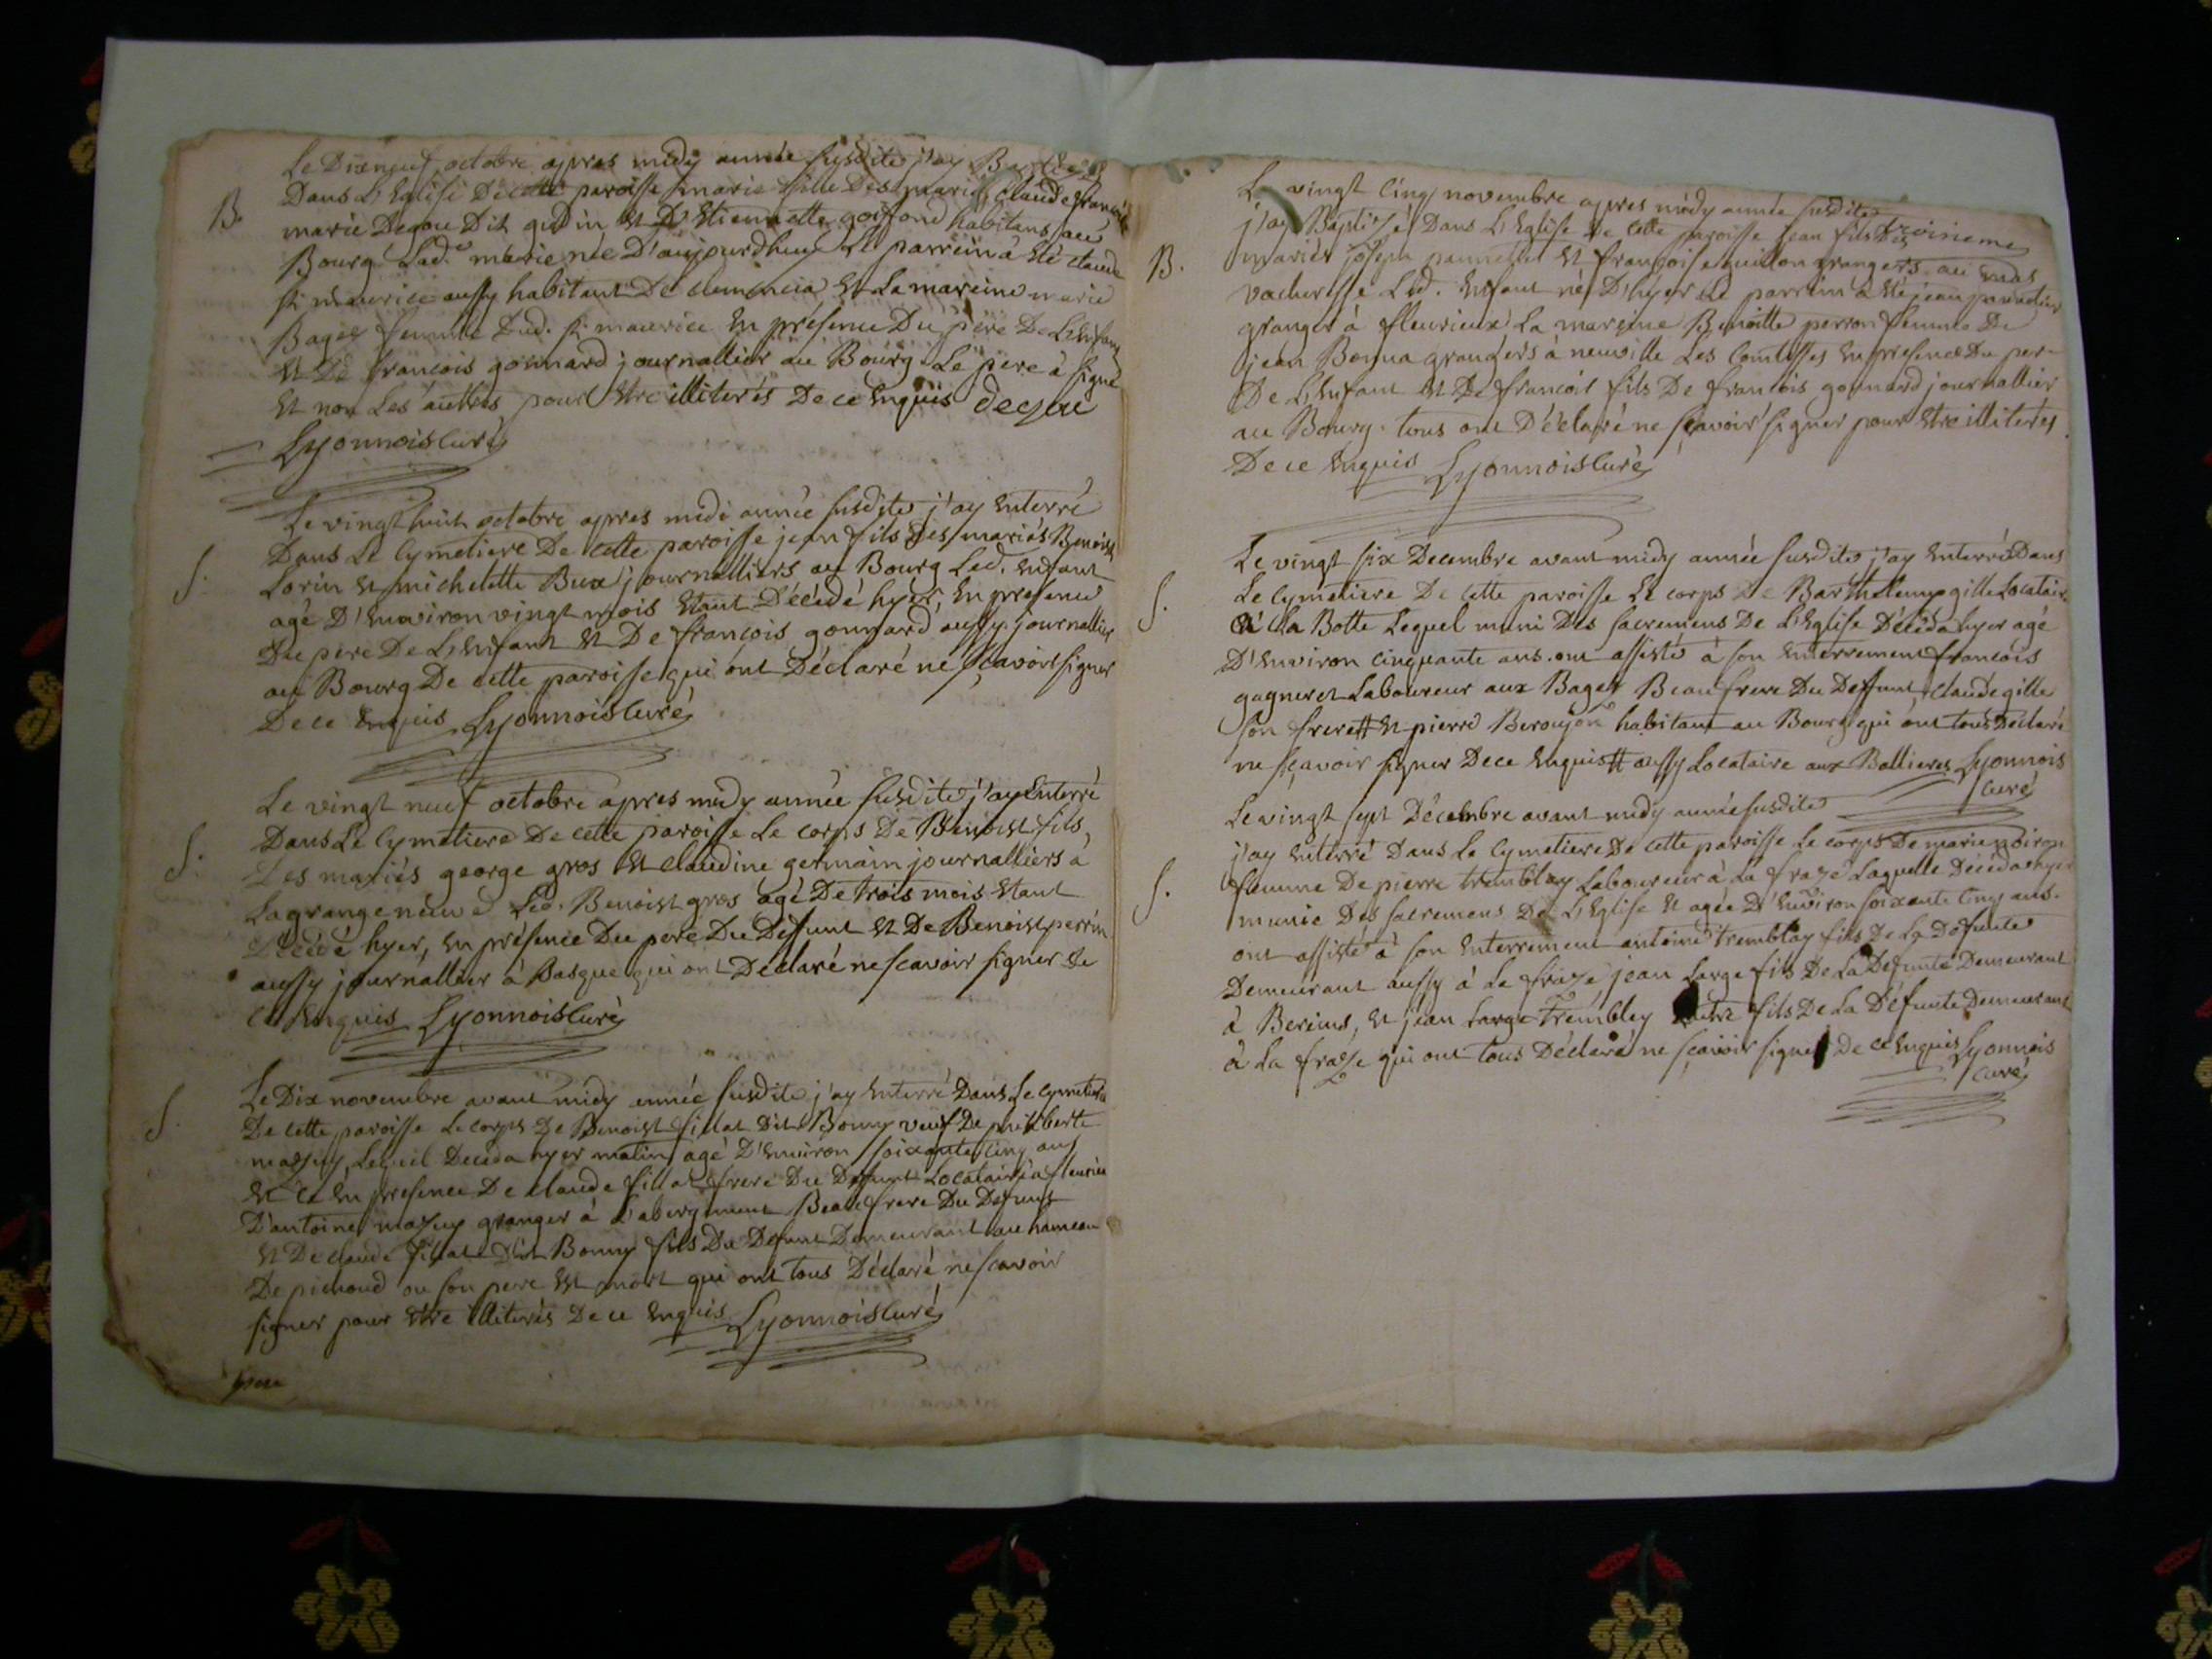 Le Dixneuf octobre apres midy année susdite j'ay Baptisé
B. Dans L'Eglise De cette paroisse marie fille Des mariés, claude françois
marie Degou Dit gudin et D'Etiennette goiffond habitans au
Bourg Lad.e marie née D'aujourdhuy Le parrein a été claude
st maurice aussy habitant De clemencia et La mareine marie
Bages femme Dud. st maurice En presence Du pere De L'Enfant
et De francois gonnard journallier au Bourg. Le pere à signé
et non Les autres pour Etre illiterés De ce Enquis degou
Lyonnois curé
Le vingt huit octobre apres midi année susdite j'ay Enterré
S. Dans Le Cymetiere De cette paroisse jean fils Des mariés Benoist
Lorin et michelette Bux journalliers au Bourg Led. Enfant
agé D'Environ vingt mois Etant Décédé hyer, En presence
Du pere De L'Enfant et De francois gonnard aussy journallier
au Bourg De cette paroisse qui ont Déclaré ne sçavoir signer
De ce Enquis Lyonnois curé
Le vingt neuf octobre apres midy année susdite j'ay Enterré
Dans Le Cymetiere De cette paroisse Le corps De Benoist fils
S. Des mariés george gros et claudine germain journalliers à
La grange neuve Led. Benoist gros agé De trois mois Etant
Décédé hyer, En présence Du pere Du Defunt et De Benoist perrin
aussy journallier à Basque qui ont Déclaré ne scavoir signer De
ce Enquis Lyonnois curé
Le Dix novembre avant midy année susdite j'ay Enterré Dans Le cymetiere
S. De cette paroisse Le corps De Benoist fillat Dit Bonny veuf De philiberte
mazuy, Lequel Deceda hyer matin agé D'Environ soixante cinq ans
et ce En presence De claude fillat frere Du Defunt Locataire à fleurieu
D'antoine mazuy granger à L'abergement Beaufrere Du Defunt
et De claude fillat Dit Bonny fils Du Defunt Demeurant au hameau
De pichoud ou son pere Est mort qui ont tous Déclaré ne scavoir
signer pour Etre illiterés De ce Enquis Lyonnois curé
Le vingt cinq novembre apres midy année susdite
j'ay Baptisé Dans L'Eglise De cette paroisse jean fils Des troisieme
B. mariés joseph pannetier et françoise guillon grangers au mas
vacheresse Led. Enfant né D'hyer Le parrein a été jean pannetier
granger à fleurieux La mareine Benoitte perron femme De
jean Bonna grangers à neuville Les Comtesses En presence Du pere
De L'Enfant et De francois fils De francois gonnard journallier
au Bourg. tous ont Déclaré ne sçavoir signer pour Etre illiterés
De ce Enquis Lyonnois curé
Le vingt six Decembre avant midy année susdite j'ay Enterré Dans
Le Cymetiere De cette paroisse Le corps De Barthelemy gille Locataire
S. à La Botte Lequel muni Des sacremens De L'Eglise Déceda hyer agé
D'Environ cinquante ans. ont assisté à son Enterrement francois
gagneret Laboureur aux Bages Beaufrere Du Deffunt, claude gille
son frere # et pierre Beroujon habitant au Bourg qui ont tous Declaré
ne sçavoir signer De ce Enquis # aussy Locataire aux Bottieres Lyonnois
curé
Le vingt sept Décembre avant midy année susdite
j'ay Enterré Dans Le Cymetiere De cette paroisse Le corps De marie poiron
S. femme De pierre tremblay Laboureur à La fraze Laquelle Déceda hyer
munie Des sacremens De L'Eglise et agée D'Environ soixante cinq ans.
ont assisté à son Enterrement antoine tremblay fils De La Défunte
Demeurant aussy à La fraze, jean Large fils De La Defunte Demeurant
à Bereins, et jean Large Trembley autre fils De La Défunte Demeurant
à La fraze qui ont tous Déclaré ne sçavoir signer De ce Enquis Lyonnois
curé